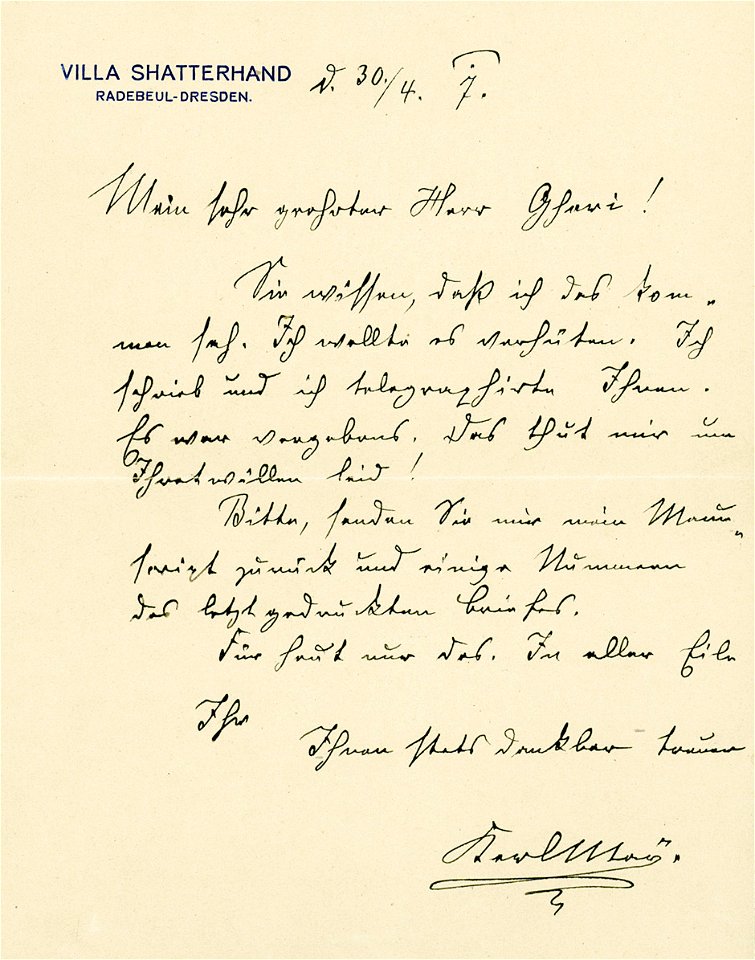 VILLA SHATTERHAND
RADEBEUL-DRESDEN.
d. 30./4. 7.
Mein sehr geehrter Herr Gheri!
Sie wissen, daß ich das kom-
men sah. Ich wollte es verhüten. Ich
schrieb und ich telegraphirte Ihnen.
Es war vergebens. Das thut mir um
Ihretwillen leid!
Bitte, senden Sie mir mein Manu-
script zurück und einige Nummern
des letztgedruckten Briefes.
Für heut nur das. In aller Eile
Ihr
Ihnen stets dankbar treuer
Karl May.